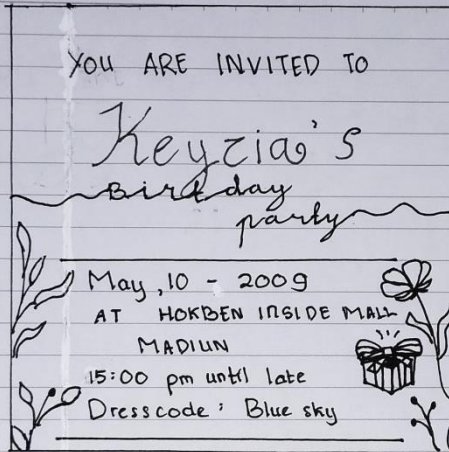 YOU ARE INVITED TO
Keyzia's
Birtday
party
May, 10 - 2009
AT HOKBEN INSIDE MALL
MADIUN
15:00 pm until late
Dresscode : Blue sky